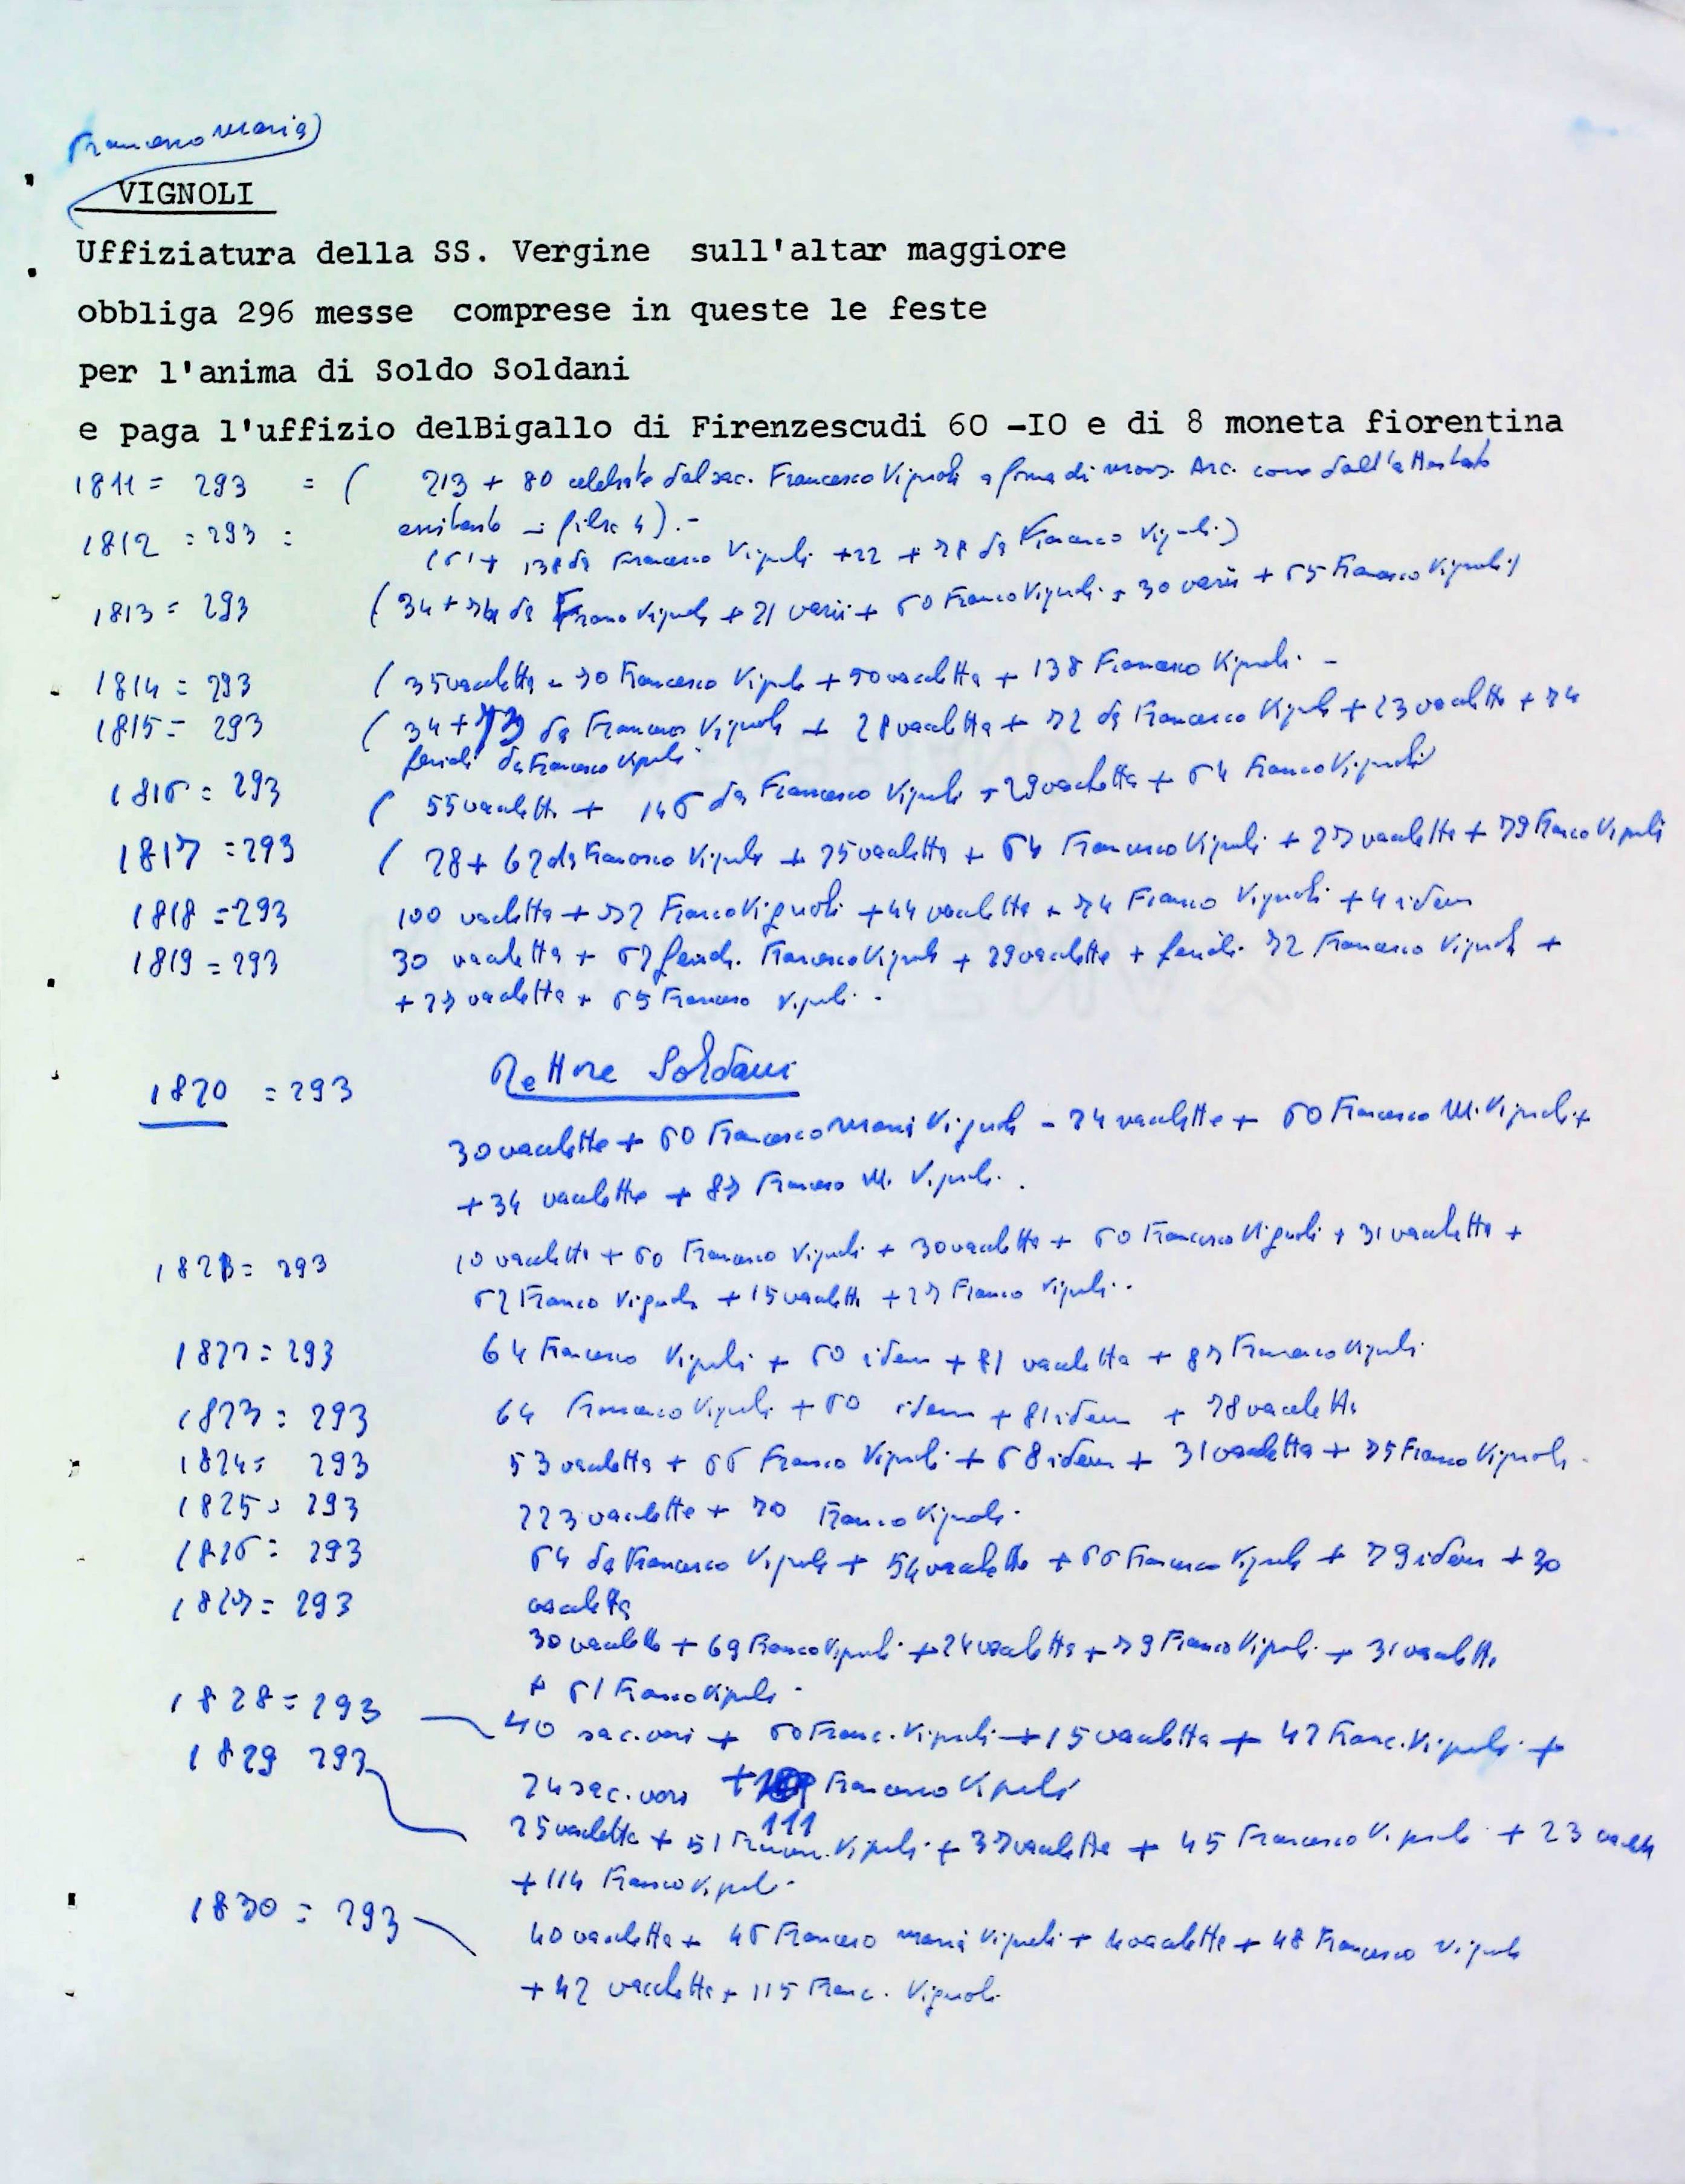 Francesco Maria)
VIGNOLI
Uffiziatura della SS. Vergine sull'altar maggiore
obbliga 296 messe comprese in queste le feste
per l'anima di Soldo Soldani
e paga l'uffizio delBigallo di Firenzescudi 60 -IO e di 8 moneta fiorentina
1811 = 293 = ( 213 + 80 celebrate dal sac. Francesco Vignoli a forma di mons. Arc. come dall'attestato
esistente in filza 4).-
1812 = 293 = (61 + 138 da Francesco Vignoli + 22 + 78 da Francesco Vignoli)
1813 = 293 (34 + da Franco Vignoli + 21 varii + 60 Franco Vignoli + 30 varii + 65 Francesco Vignoli)
1814 = 293 ( 35 vacchetta 30 Francesco Vignoli + 50 vacchetta + 138 Francesco Vignoli -
1815 = 293 ( 34 + 73 da Francesco Vignoli + 28 vacchetta + 72 da Francesco Vignoli + 23 vacchetta + 74
feriali da Francesco Vignoli
1816 = 293 ( 55 vacchetta + 146 da Francesco Vignoli + 29 vacchetta + 64 Franco Vignoli
1817 = 293 ( 28 + 62 da Francesco Vignoli + 25 vacchetta + 64 Francesco Vignoli + 27 vacchetta + 79 Franco Vignoli
1818 = 293 100 vacchetta + 72 Franco Vignoli + 44 vacchetta + 74 Franco Vignoli + 4 idem
1819 = 293 30 vacchetta + 62 feriali Francesco Vignoli + 29 vacchetta + feriali 72 Francesco Vignoli +
+ 27 vacchetta + 65 Francesco Vignoli -
Rettore Soldani
1820 = 293
30 vacchetta + 60 Francesco Maria Vignoli - 24 vacchetta + 60 Francesco M. Vignoli +
+ 34 vacchetta + 87 Francesco M. Vignoli.
182 = 293 10 vacchetta + 60 Francesco Vignoli + 30 vacchetta + 60 Francesco Vignoli + 31 vacchetta +
62 Franco Vignoli + 15 vacchetta + 27 Franco Vignoli.
1822 = 293 64 Francesco Vignoli + 60 idem + 81 vacchetta + 87 Francesco Vignoli
1823 = 293 64 Francesco Vignoli + 60 idem + 81 idem + 78 vacchetta
1824 = 293 53 vacchetta + 66 Franco Vignoli + 68 idem + 31 vacchetta + 75 Franco Vignoli.
1825 = 293 223 vacchetta + 70 Franco Vignoli.
1826 = 293 64 da Francesco Vignoli + 54 vacchetta + 66 Francesco Vignoli + 79 idem + 30
vacchetta
1827 = 293
30 vacchetta + 69 Franco Vignoli + 24 vacchetta + 79 Franco Vignoli + 31 vacchetta
+ 61 Franco Vignoli -
1828 = 293 40 sac. vari + 60 Franc. Vignoli + 15 vacchetta + 42 Franc. Vignoli +
24 sac. vari + 111 Francesco Vignoli
1829 293 25 vacchetta + 51 Franc. Vignoli + 37 vacchetta + 45 Francesco Vignoli + 23 vacch
+ 114 Franco Vignoli -
1830 = 293 40 vacchetta + 46 Francesco Maria Vignoli + 4 vacchette + 48 Francesco Vignoli
+ 42 vacchetta + 115 Franc. Vignoli